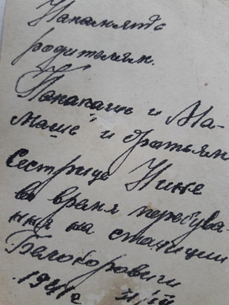 На память
родителям.
Папакаше и Ма-
маше и братьям
Сестрице Нине
во время пребува-
ния на станции
Белокоровичи
1941 г.